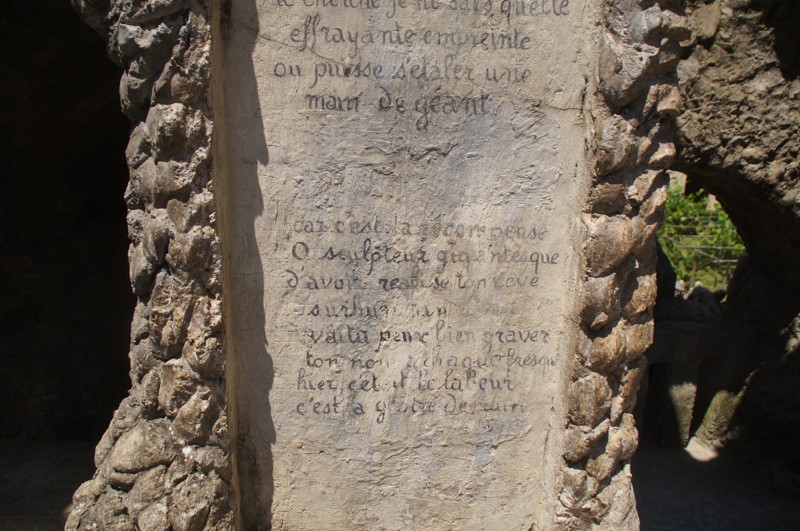 je cherche je ne sais quelle
effrayante empreinte
ou puisse s'etaler une
main de géant
car c'est la recompense
O sculpteur gigantesque
d'avoir realise ton reve
surhumain
va tu peux bien graver
ton nom a chaque fresque
hier, cetait le labeur
c'est la gloire demain